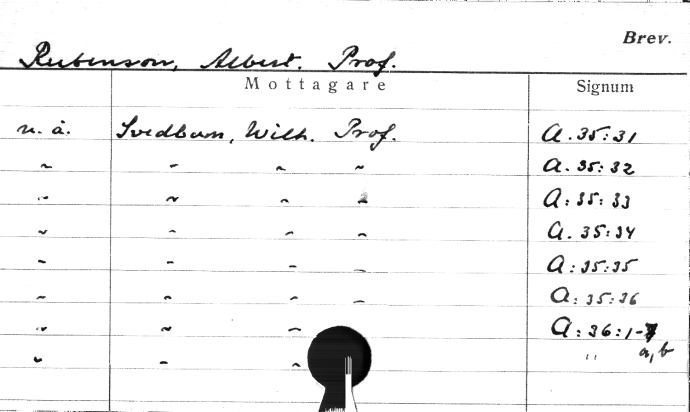 Brev.
Rubenson, Albert. Prof.
Mottagare Signum
n. å. Svedbom, Wilh. Prof. A. 35:31
" " " " A. 35:32
" " " " A: 35: 33
" " " " A. 35:34
" " " " A: 35:35
" " " " A: 35:36
" " " A: 36:1-7
" " " " a, b